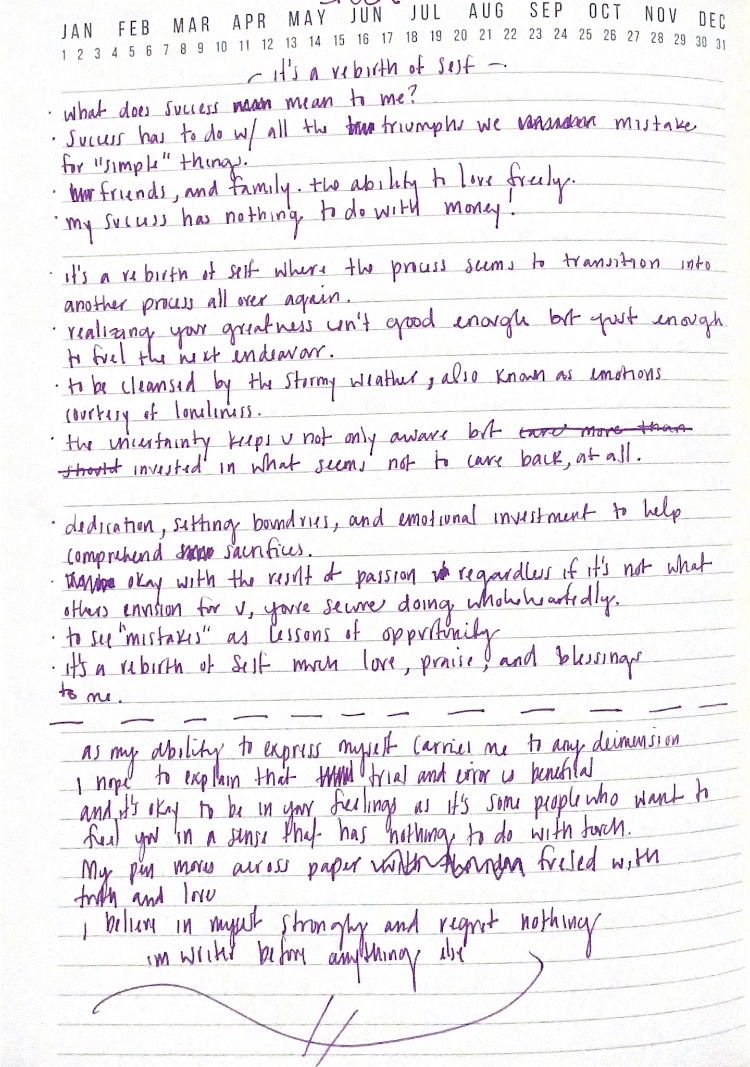 JAN FEB MAR APR MAY JUN JUL AUG SEP OCT NOV DEC
1 2 3 4 5 6 7 8 9 10 11 12 13 14 15 16 17 18 19 20 21 22 23 24 25 26 27 28 29 30 31
it's a rebirth of self -
· what does success mean to me?
· success has to do w/ all the triumphs we mistake
for "simple" things.
· friends, and family. the ability to love freely.
· my success has nothing to do with money!
· it's a rebirth of self where the process seems to transition into
another process all over again.
· realizing your greatness isn't good enough but just enough
to fuel the next endeavor.
· to be cleansed by the stormy weather, also known as emotions
courtesy of loneliness.
· the uncertainty keeps u not only aware but care more than
should invested in what seems not to care back, at all.
· dedication, setting boundries, and emotional investment to help
comprehend sacrifices.
· okay with the result of passion regardless if it's not what
others envision for u, you're secure doing wholeheartedly.
· to see "mistakes" as lessons of opportunity
· it's a rebirth of self much love, praise, and blessings
to me.
as my ability to express myself carries me to any deimension
I hope to explain that trial and error is beneficial
and it's okay to be in your feelings as it's some people who want to
feel you in a sense that has nothing to do with touch.
My pen moves across paper fueled with
truth and love
I believe in myself strongly and regret nothing
im writer before anything else